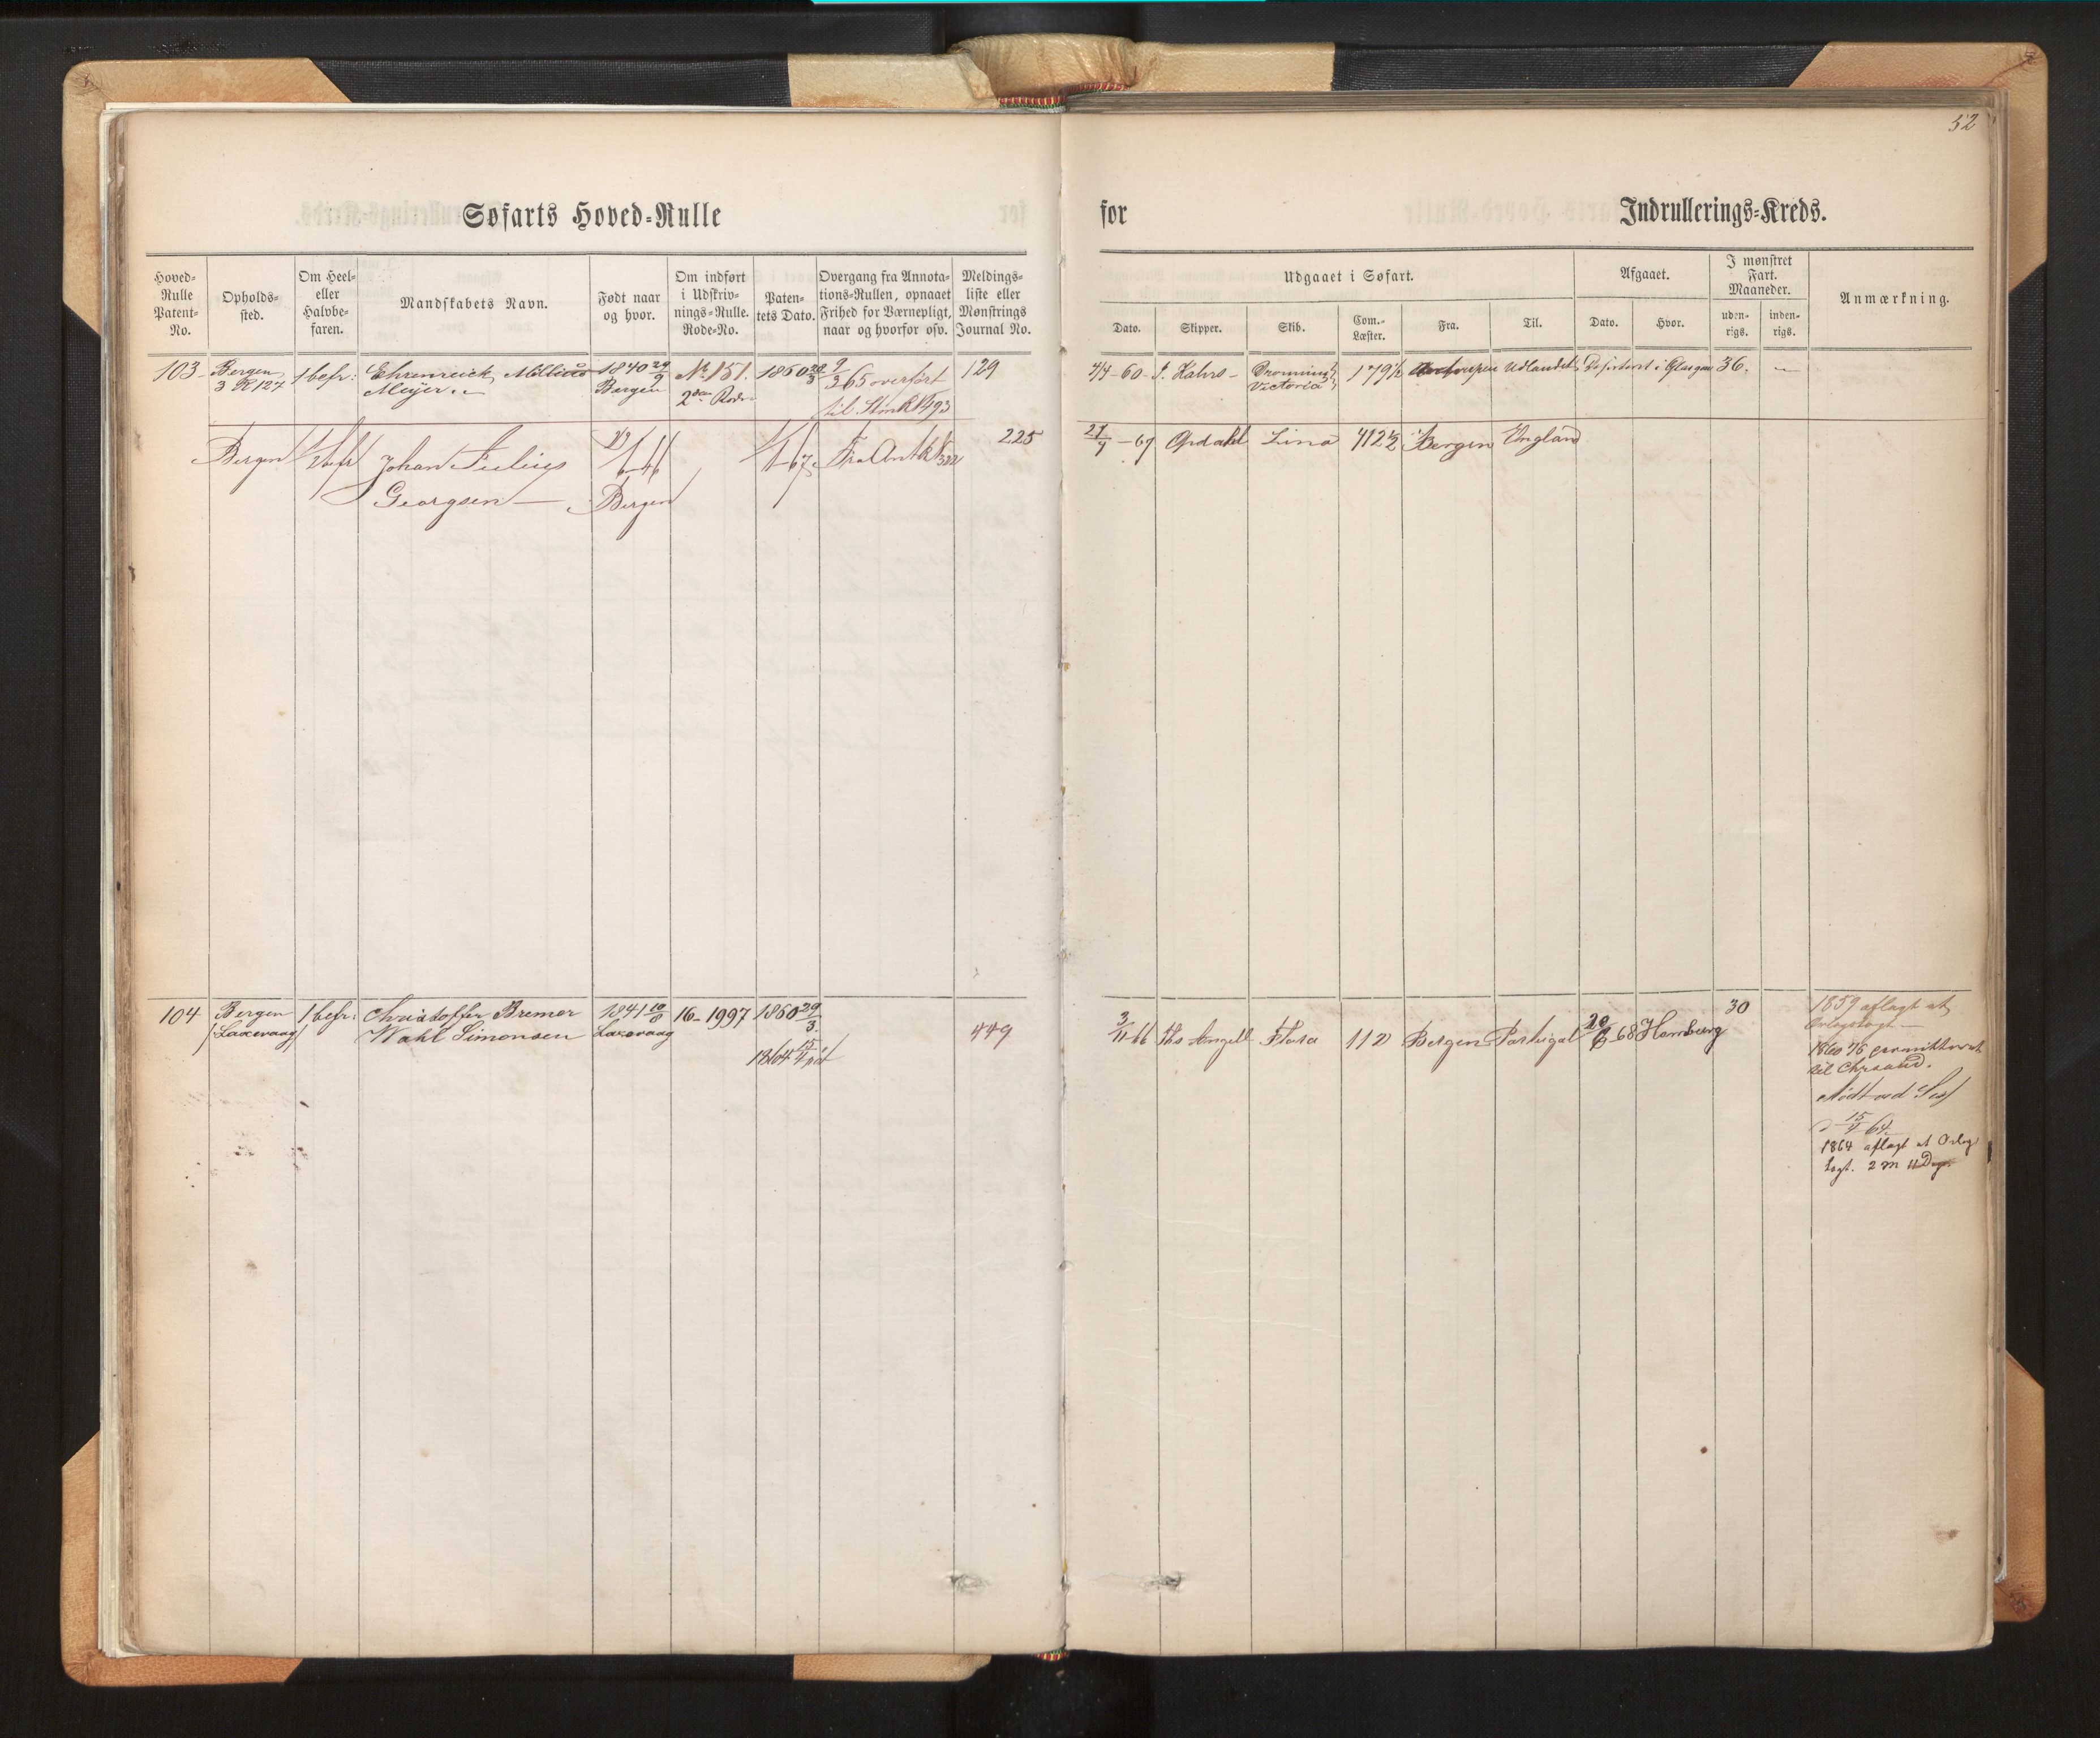 52
Søfarts Hoved-Rulle
for
Indrullerings-Kreds.
Hoved-
Rulle
Patent-
No.
Opholds-
sted.
Om Heel-
eller
Halvbe-
faren.
Mandskabets Navn.
Født naar
og hvor.
Om indført
i Udskriv-
nings-Rulle.
Rode-No.
Paten-
tets Dato.
Overgang fra Annota-
tions-Rullen, opnaaet
Frihed for Værnepligt,
naar og hvorfor osv.
Meldings-
liste eller
Mønstrings
Journal No.
Udgaaet i Søfart.
Dato.
Skipper.
Skib.
Com.-
Læster.
Fra.
Til.
Afgaaet.
Dato.
Hvor.
I mønstret
Fart.
Maaneder.
uden-
rigs.
inden-
rigs.
Anmærkning.
103
Bergen
3 R 127
1 befr:
Ehrenreich
Meyer
1840 29/9
Bergen
No 151.
2den Rode
1860 29/3
9/3 65 overført
til
129
4/4-60
Kahrs
Dronning
Victoria
179½
Udlandet
i Glasgow
36.
Bergen
½ befr
Johan Julius
Georgsen
Bergen
Fra
225
27/7-69
Opdahl
Lina
Bergen
England
104
Bergen
/Laxevaag/
1 befr:
Christoffer Bremer
Wahl Simonsen
1841 10/8
Laxevaag
16-1997
1860 29/3.
449
3/11-66
Angell
Flora
112
Bergen
Portugal
20/6-68
Hamburg
30
1859 aflagt et
Orlogstogt
1860
til Chrsand.
Mødt ved Sess
15/4 64.
1864 aflagt et Orlogs
togt. 2 M 11 Dage